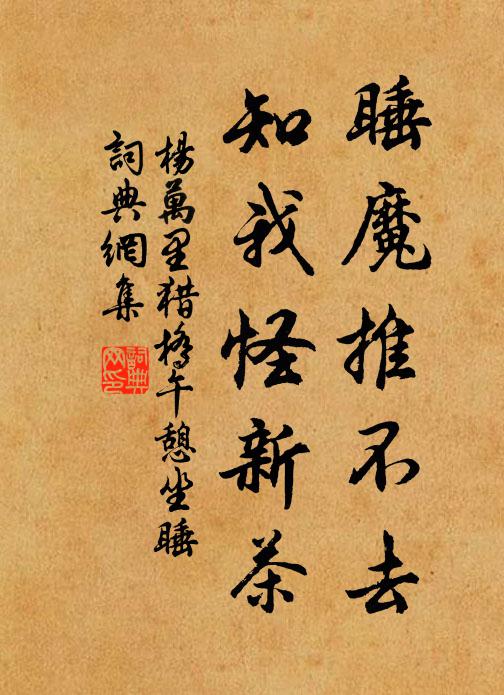 睡魔推不去
知我怪新茶
楊萬里猎橋午憩坐睡
詞典網集
詞典
网印